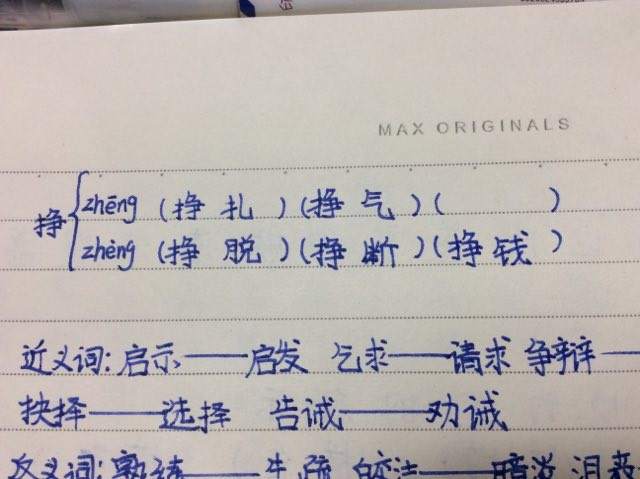 MAX ORIGINALS
挣 zhēng (挣扎)(挣气)( )
zhèng (挣脱)(挣断)(挣钱)
近义词:启示——启发 乞求——请求 争辩——
抉择——选择 告诫——劝诫
反义词:熟练——生疏 皎洁——暗淡